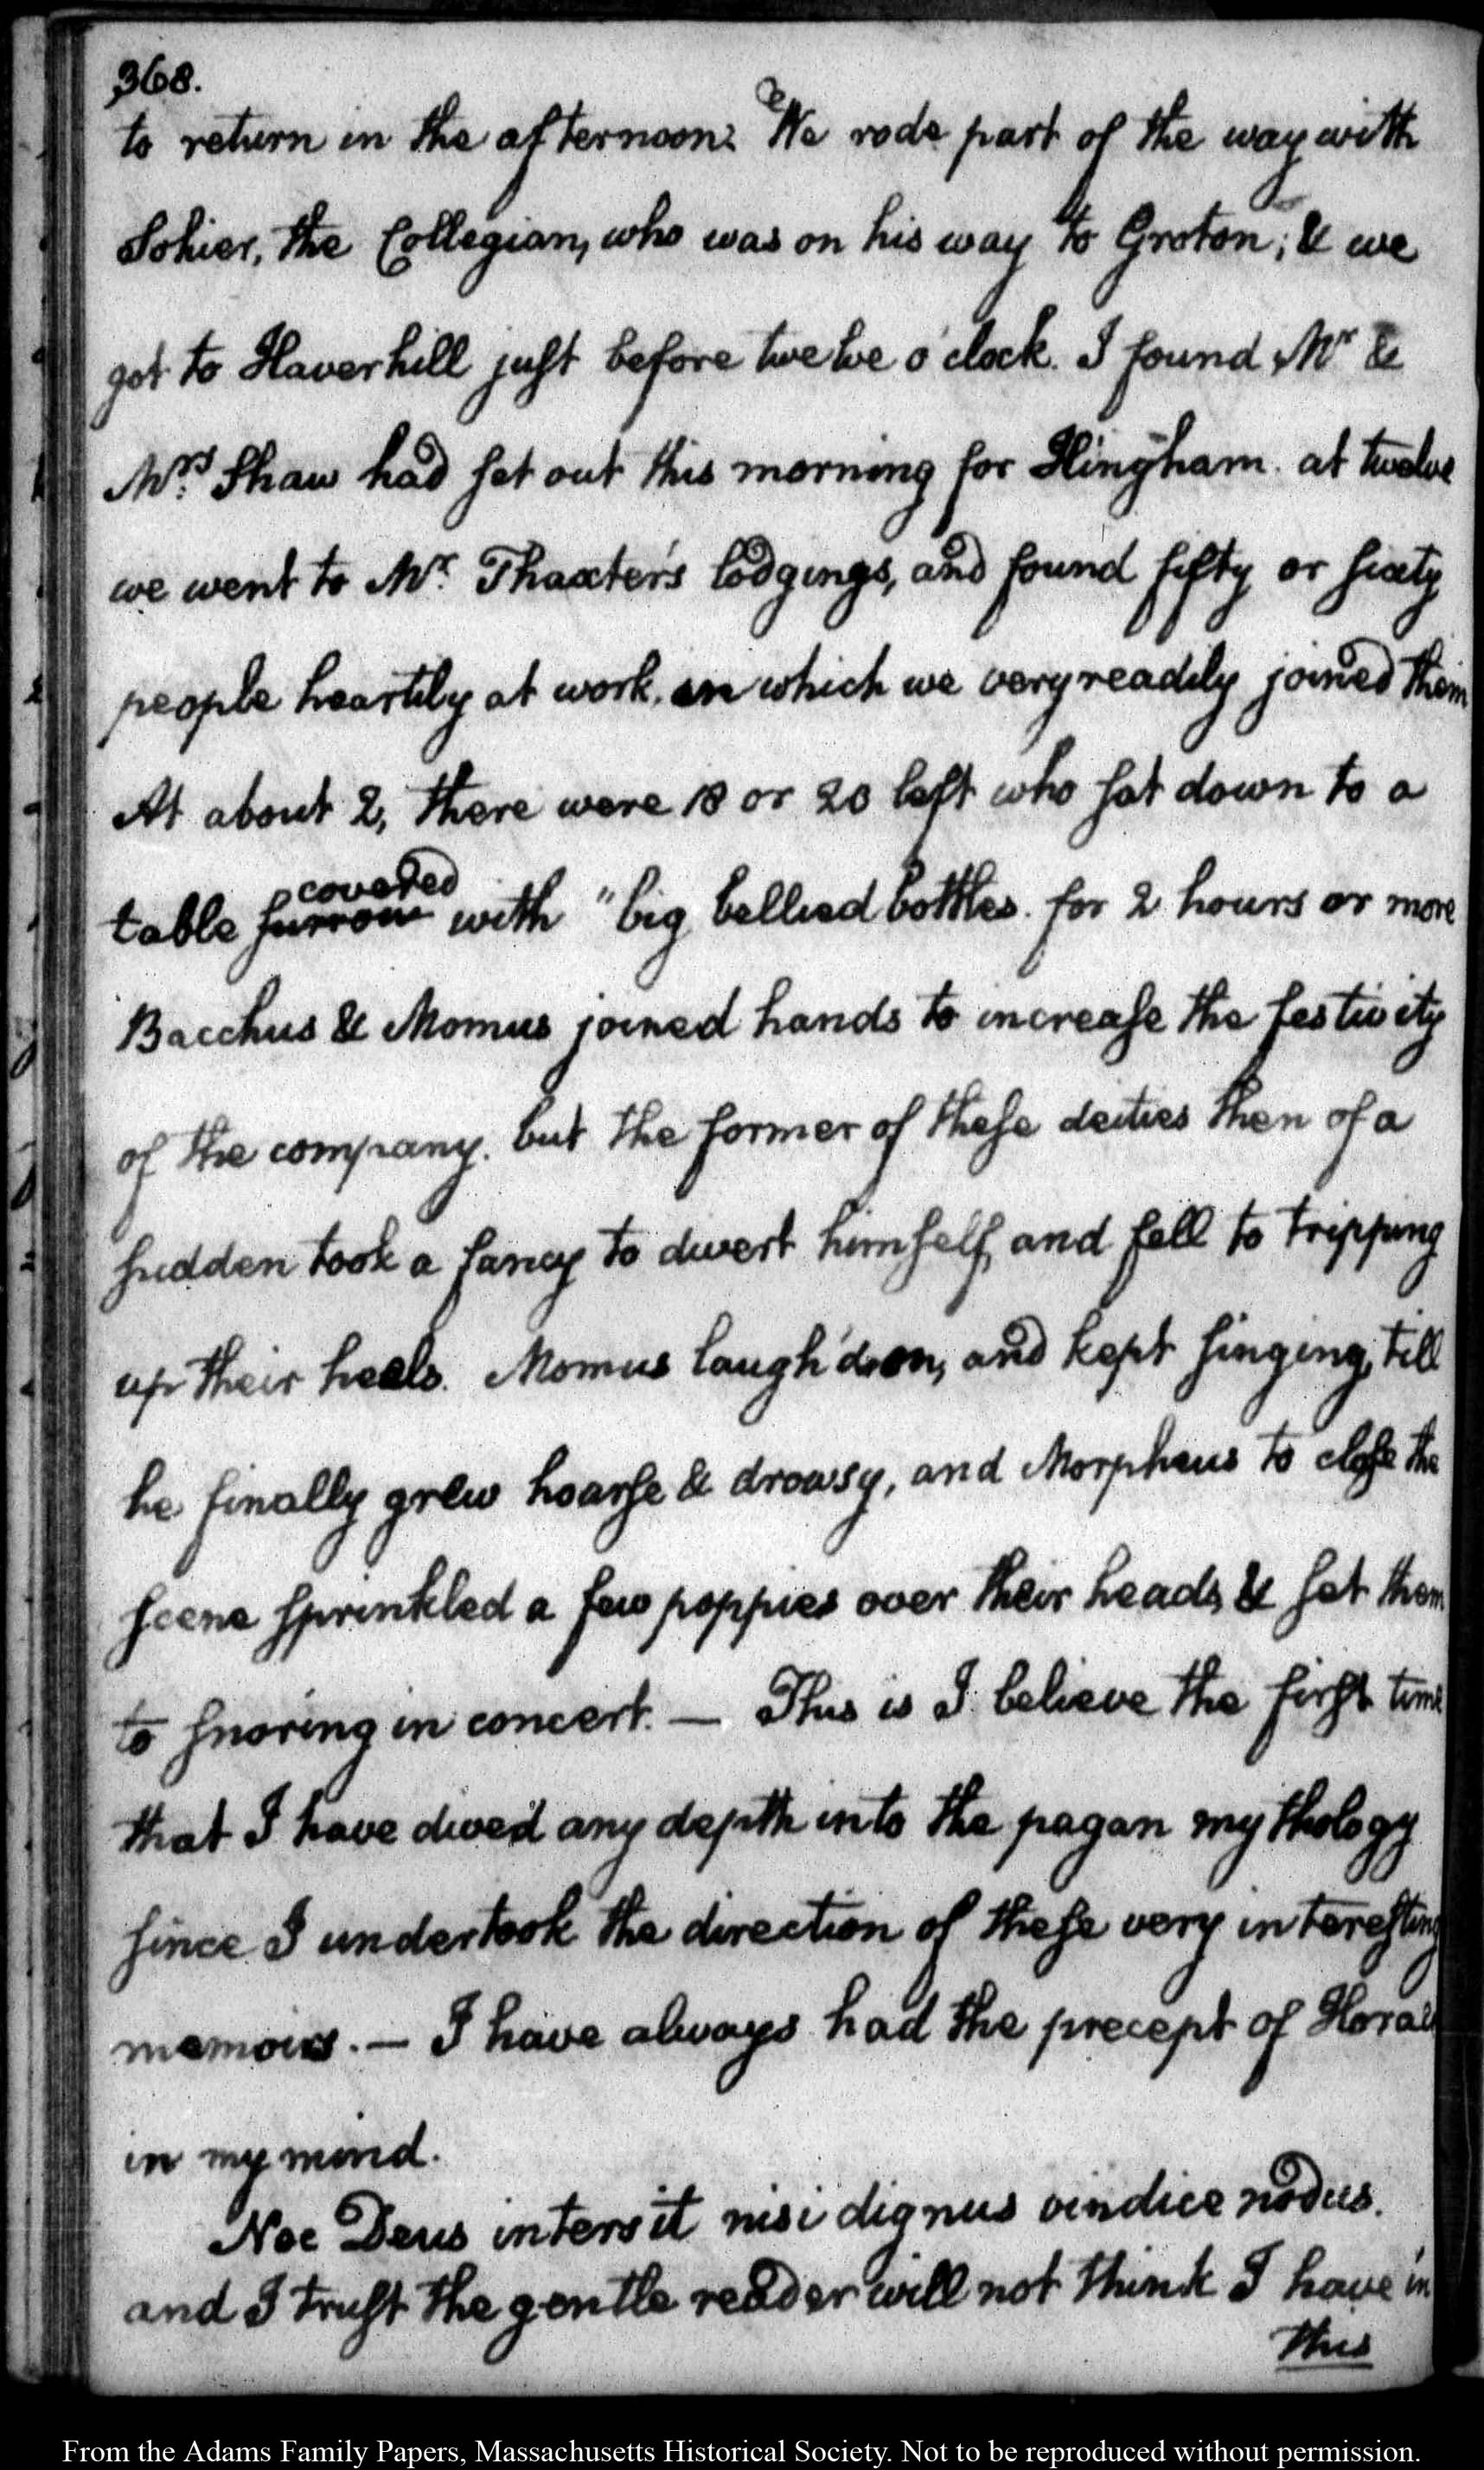 368.
to return in the afternoon: We rode part of the way with
Sohier, the Collegian, who was on his way to Groton; & we
got to Haverhill just before twelve o'clock. I found Mr &
Mrs Shaw had set out this morning for Hingham. at twelve
we went to Mr. Thaxter's lodgings, and found fifty or sixty
people heartily at work, in which we very readily joined them
At about 2, there were 18 or 20 left who sat down to a
covered
table furrow with "big bellied bottles. for 2 hours or more
Bacchus & Momus joined hands to increase the festivity
of the company. but the former of these deities then of a
sudden took a fancy to divert himself, and fell to tripping
up their heels. Momus laugh'd on, and kept singing, till
he finally grew hoarse & drowsy, and Morpheus to close the
scene sprinkled a few poppies over their heads, & set them
to snoring in concert. — This is I believe the first time
that I have dived any depth into the pagan mythology
since I undertook the direction of these very interesting
memoirs. — I have always had the precept of Horace
in my mind.
Nec Deus intersit nisi dignus vindice nodus.
and I trust the gentle reader will not think I have in
this
From the Adams Family Papers, Massachusetts Historical Society. Not to be reproduced without permission.